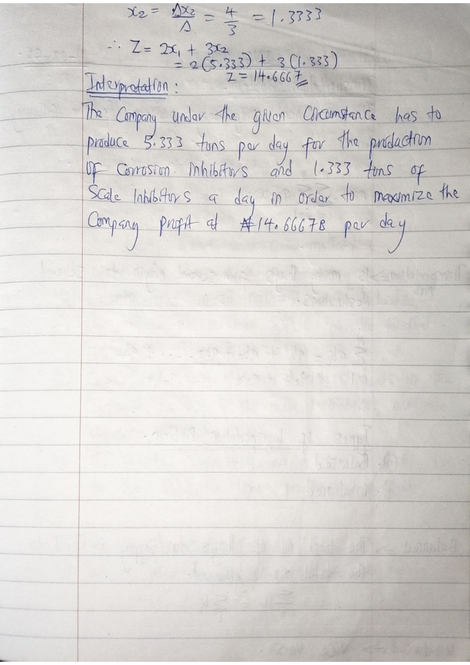 x2 = Δx2/Δ = 4/3 = 1.3333
∴ Z = 2x1 + 3x2
= 2(5.333) + 3(1.333)
Z = 14.6667
Interpretation:
The Company under the given Circumstance has to
produce 5.333 tons per day for the production
of Corrosion inhibitors and 1.333 tons of
Scale Inhibitors a day in order to maximize the
Company profit at ₦14.6667B per day